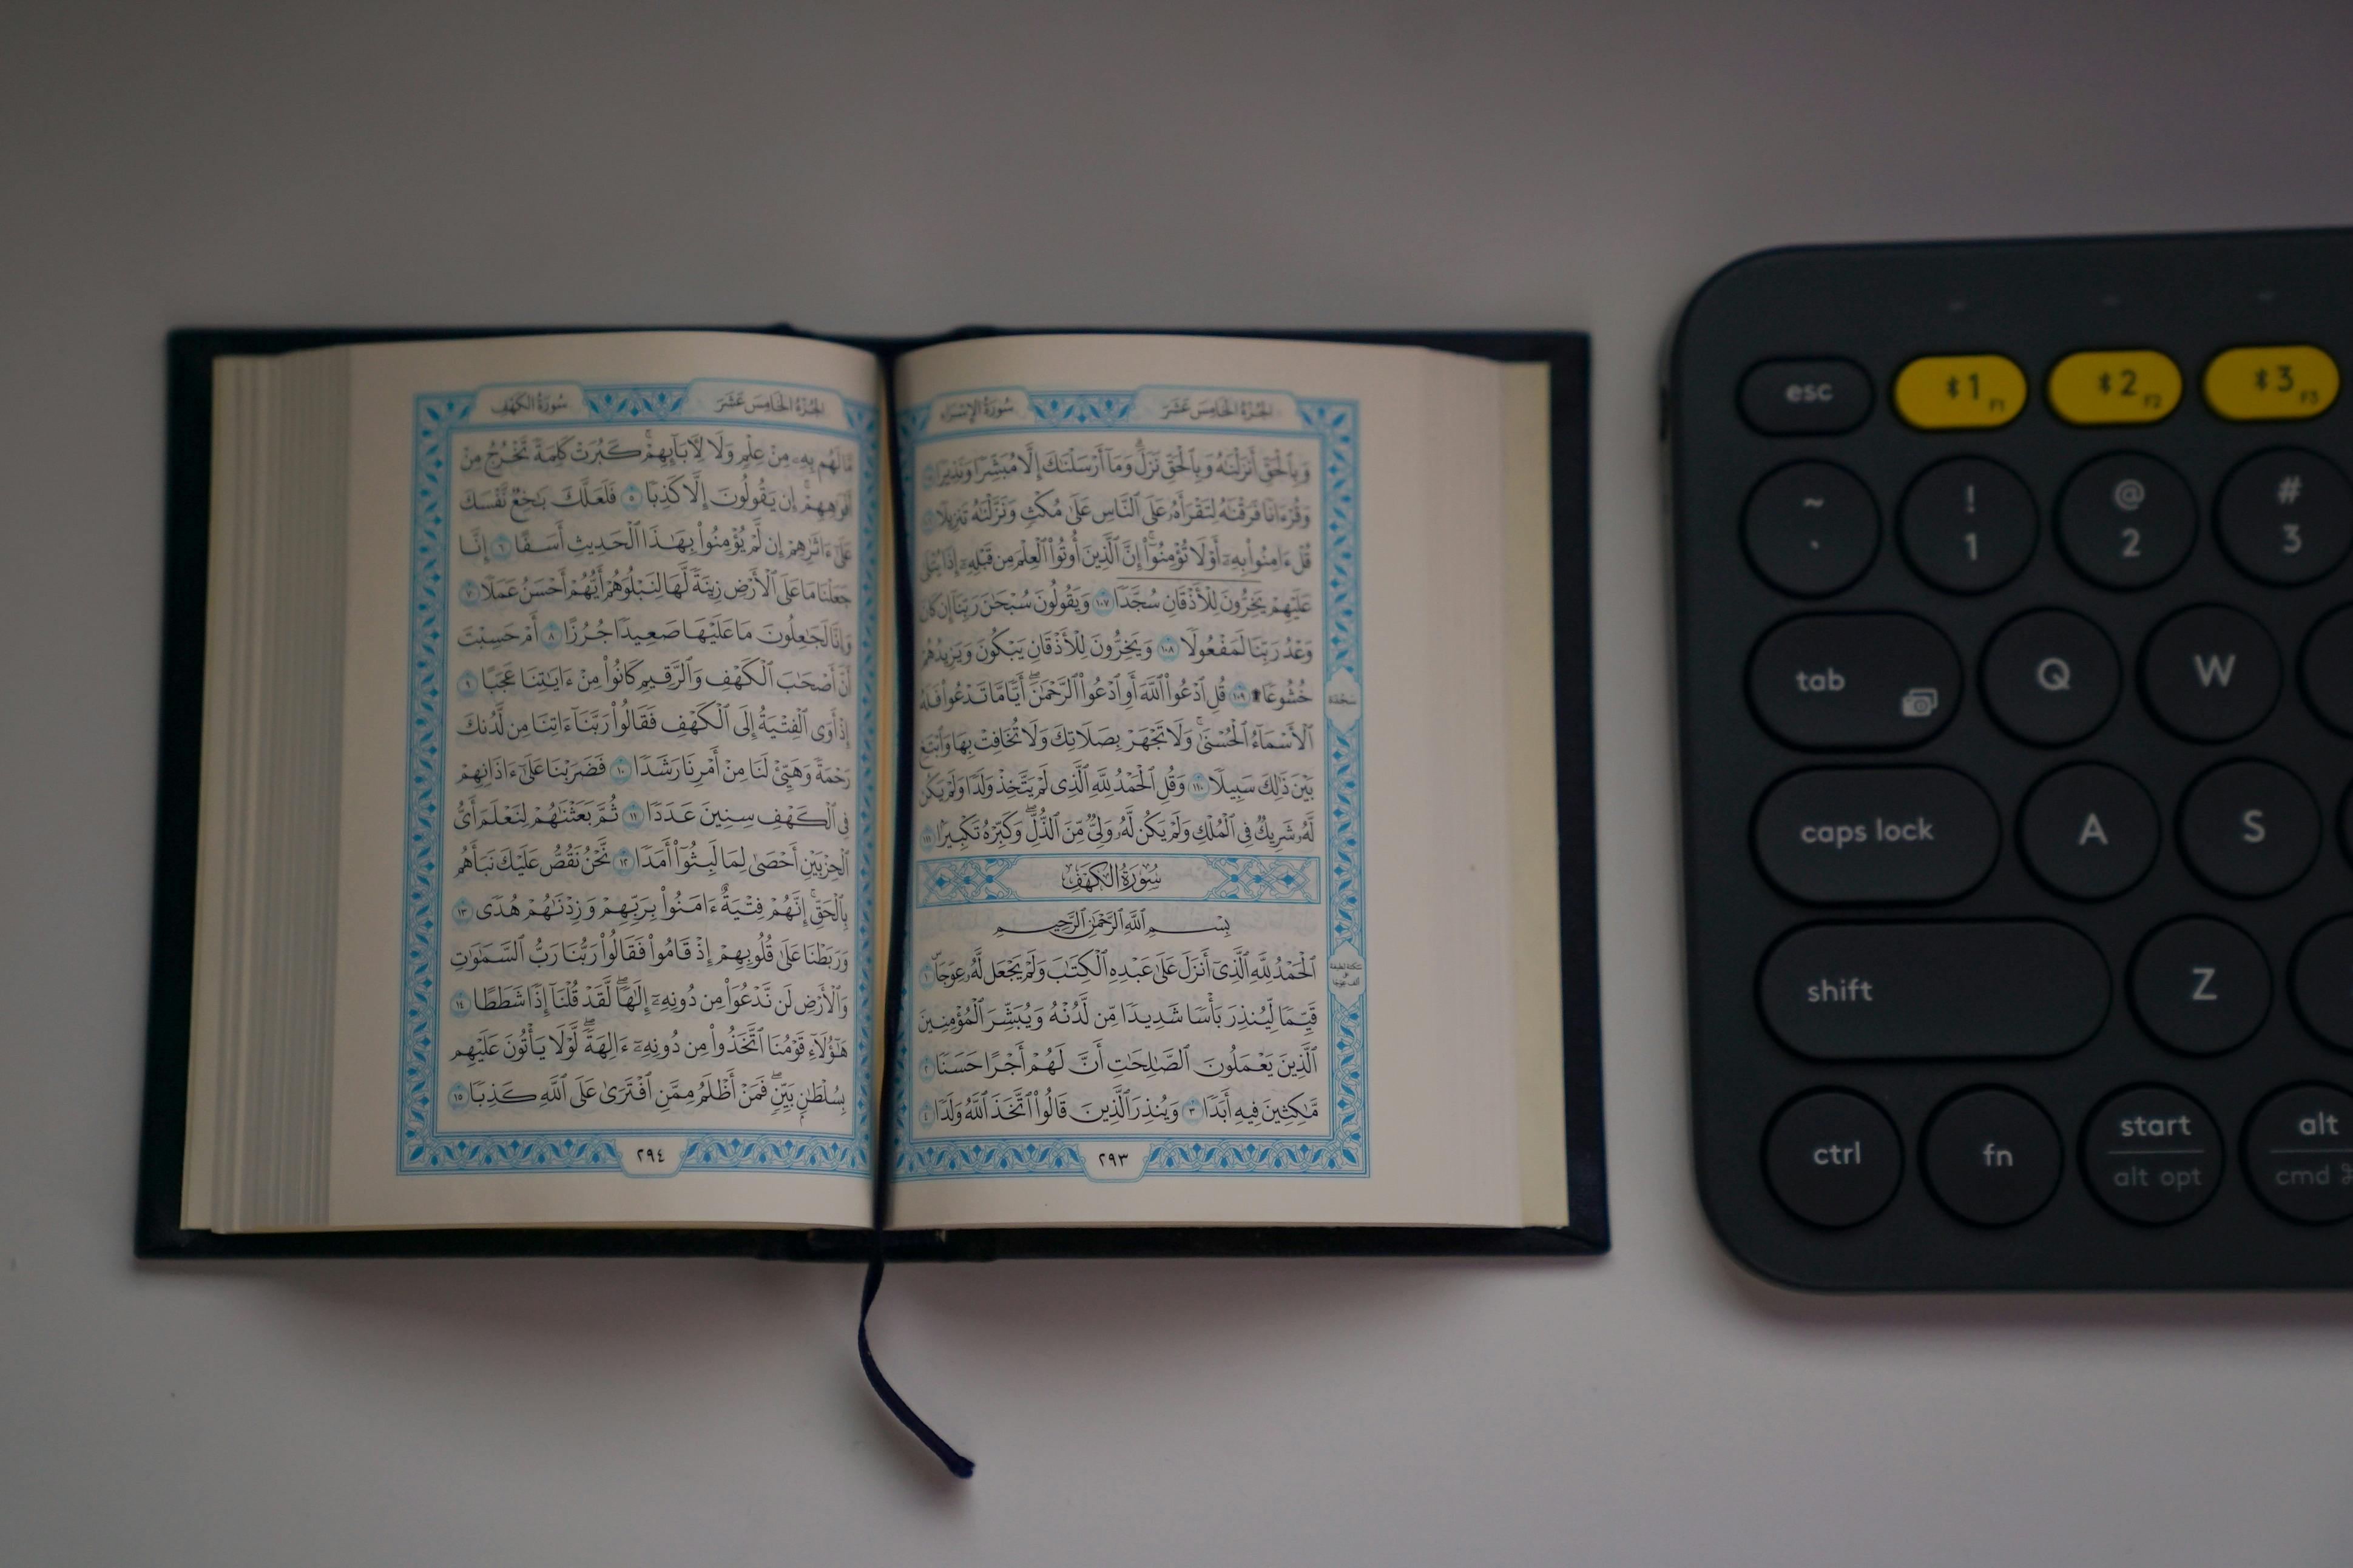 الجزء الخامس عشر
سورة الإسراء
وَبِٱلْحَقِّ أَنزَلْنَٰهُ وَبِٱلْحَقِّ نَزَلَ ۗ وَمَآ أَرْسَلْنَٰكَ إِلَّا مُبَشِّرًا وَنَذِيرًا ١٠٥
وَقُرْءَانًا فَرَقْنَٰهُ لِتَقْرَأَهُۥ عَلَى ٱلنَّاسِ عَلَىٰ مُكْثٍ وَنَزَّلْنَٰهُ تَنزِيلًا ١٠٦
قُلْ ءَامِنُوا۟ بِهِۦٓ أَوْ لَا تُؤْمِنُوٓا۟ ۚ إِنَّ ٱلَّذِينَ أُوتُوا۟ ٱلْعِلْمَ مِن قَبْلِهِۦٓ إِذَا يُتْلَىٰ
عَلَيْهِمْ يَخِرُّونَ لِلْأَذْقَانِ سُجَّدًا ١٠٧ وَيَقُولُونَ سُبْحَٰنَ رَبِّنَآ إِن كَانَ
وَعْدُ رَبِّنَا لَمَفْعُولًا ١٠٨ وَيَخِرُّونَ لِلْأَذْقَانِ يَبْكُونَ وَيَزِيدُهُمْ
خُشُوعًا ۩ ١٠٩ قُلِ ٱدْعُوا۟ ٱللَّهَ أَوِ ٱدْعُوا۟ ٱلرَّحْمَٰنَ ۖ أَيًّا مَّا تَدْعُوا۟ فَلَهُ
سجدة
ٱلْأَسْمَآءُ ٱلْحُسْنَىٰ ۚ وَلَا تَجْهَرْ بِصَلَاتِكَ وَلَا تُخَافِتْ بِهَا وَٱبْتَغِ
بَيْنَ ذَٰلِكَ سَبِيلًا ١١٠ وَقُلِ ٱلْحَمْدُ لِلَّهِ ٱلَّذِى لَمْ يَتَّخِذْ وَلَدًا وَلَمْ يَكُن
لَّهُۥ شَرِيكٌ فِى ٱلْمُلْكِ وَلَمْ يَكُن لَّهُۥ وَلِىٌّ مِّنَ ٱلذُّلِّ ۖ وَكَبِّرْهُ تَكْبِيرًۢا ١١١
سُورَةُ الكَهْفِ
بِسْمِ ٱللَّهِ ٱلرَّحْمَٰنِ ٱلرَّحِيمِ
ٱلْحَمْدُ لِلَّهِ ٱلَّذِىٓ أَنزَلَ عَلَىٰ عَبْدِهِ ٱلْكِتَٰبَ وَلَمْ يَجْعَل لَّهُۥ عِوَجَاۜ ١
قَيِّمًا لِّيُنذِرَ بَأْسًا شَدِيدًا مِّن لَّدُنْهُ وَيُبَشِّرَ ٱلْمُؤْمِنِينَ
ٱلَّذِينَ يَعْمَلُونَ ٱلصَّٰلِحَٰتِ أَنَّ لَهُمْ أَجْرًا حَسَنًا ٢
مَّٰكِثِينَ فِيهِ أَبَدًا ٣ وَيُنذِرَ ٱلَّذِينَ قَالُوا۟ ٱتَّخَذَ ٱللَّهُ وَلَدًا ٤
٢٩٣
الجزء الخامس عشر
سورة الكهف
مَّا لَهُم بِهِۦ مِنْ عِلْمٍ وَلَا لِءَابَآئِهِمْ ۚ كَبُرَتْ كَلِمَةً تَخْرُجُ مِنْ
أَفْوَٰهِهِمْ ۚ إِن يَقُولُونَ إِلَّا كَذِبًا ٥ فَلَعَلَّكَ بَٰخِعٌ نَّفْسَكَ
عَلَىٰٓ ءَاثَٰرِهِمْ إِن لَّمْ يُؤْمِنُوا۟ بِهَٰذَا ٱلْحَدِيثِ أَسَفًا ٦ إِنَّا
جَعَلْنَا مَا عَلَى ٱلْأَرْضِ زِينَةً لَّهَا لِنَبْلُوَهُمْ أَيُّهُمْ أَحْسَنُ عَمَلًا ٧
وَإِنَّا لَجَٰعِلُونَ مَا عَلَيْهَا صَعِيدًا جُرُزًا ٨ أَمْ حَسِبْتَ
أَنَّ أَصْحَٰبَ ٱلْكَهْفِ وَٱلرَّقِيمِ كَانُوا۟ مِنْ ءَايَٰتِنَا عَجَبًا ٩
إِذْ أَوَى ٱلْفِتْيَةُ إِلَى ٱلْكَهْفِ فَقَالُوا۟ رَبَّنَآ ءَاتِنَا مِن لَّدُنكَ
رَحْمَةً وَهَيِّئْ لَنَا مِنْ أَمْرِنَا رَشَدًا ١٠ فَضَرَبْنَا عَلَىٰٓ ءَاذَانِهِمْ
فِى ٱلْكَهْفِ سِنِينَ عَدَدًا ١١ ثُمَّ بَعَثْنَٰهُمْ لِنَعْلَمَ أَىُّ
ٱلْحِزْبَيْنِ أَحْصَىٰ لِمَا لَبِثُوٓا۟ أَمَدًا ١٢ نَّحْنُ نَقُصُّ عَلَيْكَ نَبَأَهُم
بِٱلْحَقِّ ۚ إِنَّهُمْ فِتْيَةٌ ءَامَنُوا۟ بِرَبِّهِمْ وَزِدْنَٰهُمْ هُدًى ١٣
وَرَبَطْنَا عَلَىٰ قُلُوبِهِمْ إِذْ قَامُوا۟ فَقَالُوا۟ رَبُّنَا رَبُّ ٱلسَّمَٰوَٰتِ
وَٱلْأَرْضِ لَن نَّدْعُوَا۟ مِن دُونِهِۦٓ إِلَٰهًا ۖ لَّقَدْ قُلْنَآ إِذًا شَطَطًا ١٤
هَٰٓؤُلَآءِ قَوْمُنَا ٱتَّخَذُوا۟ مِن دُونِهِۦٓ ءَالِهَةً ۖ لَّوْلَا يَأْتُونَ عَلَيْهِم
بِسُلْطَٰنٍۭ بَيِّنٍ ۖ فَمَنْ أَظْلَمُ مِمَّنِ ٱفْتَرَىٰ عَلَى ٱللَّهِ كَذِبًا ١٥
٢٩٤
esc 1 F1 2 F2 3 F3
~ ` ! 1 @ 2 # 3
tab Q W
caps lock A S
shift Z
ctrl fn start alt opt alt cmd ⌘